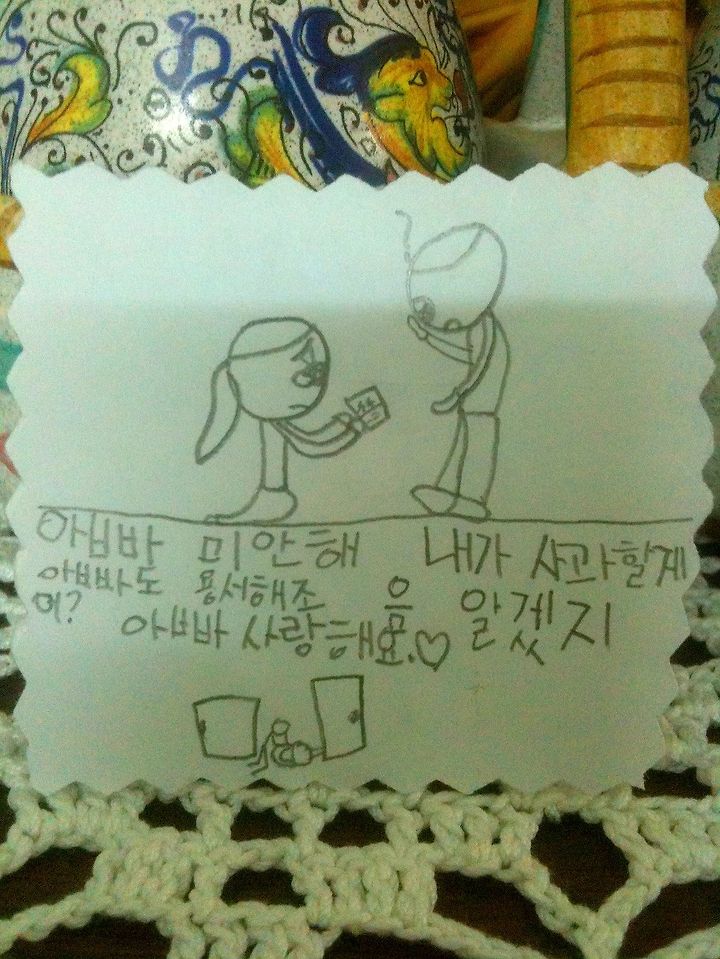 아빠바 미안해 내가 사과할게
아빠빠도 용서해조 응 알겠지
어?
아빠바 사랑해요.♡